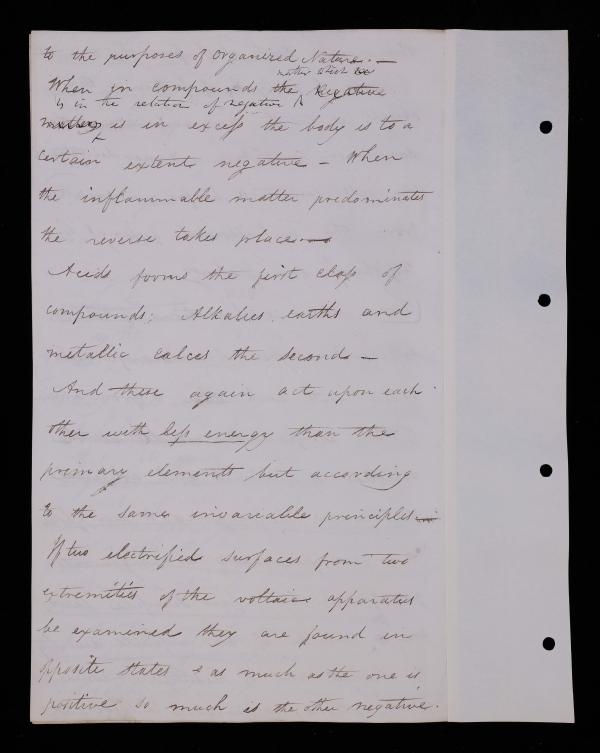 to the purposes of organized Nature. —
matter which
When in compounds the Negative
is in the relation of negative
matter is in excess the body is to a
certain extent negative — When
the inflammable matter predominates
the reverse takes place —
Acids forms the first class of
compounds; Alkalies earths and
metallic calces the second —
And these again act upon each
other with less energy than the
primary elements but according
to the same invariable principles
If two electrified surfaces from two
extremities of the voltaic apparatus
be examined they are found in
opposite states & as much as the one is
positive so much is the other negative.